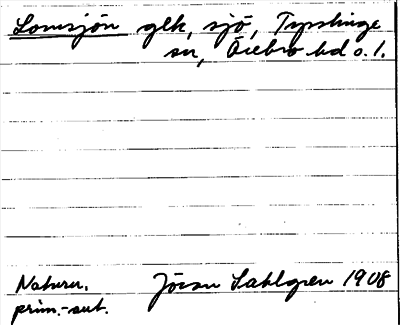 Lomsjön glk, sjö, Tysslinge
sn, Örebro hd o. l.
Naturn.
prim.-sut.
Jöran Sahlgren 1908